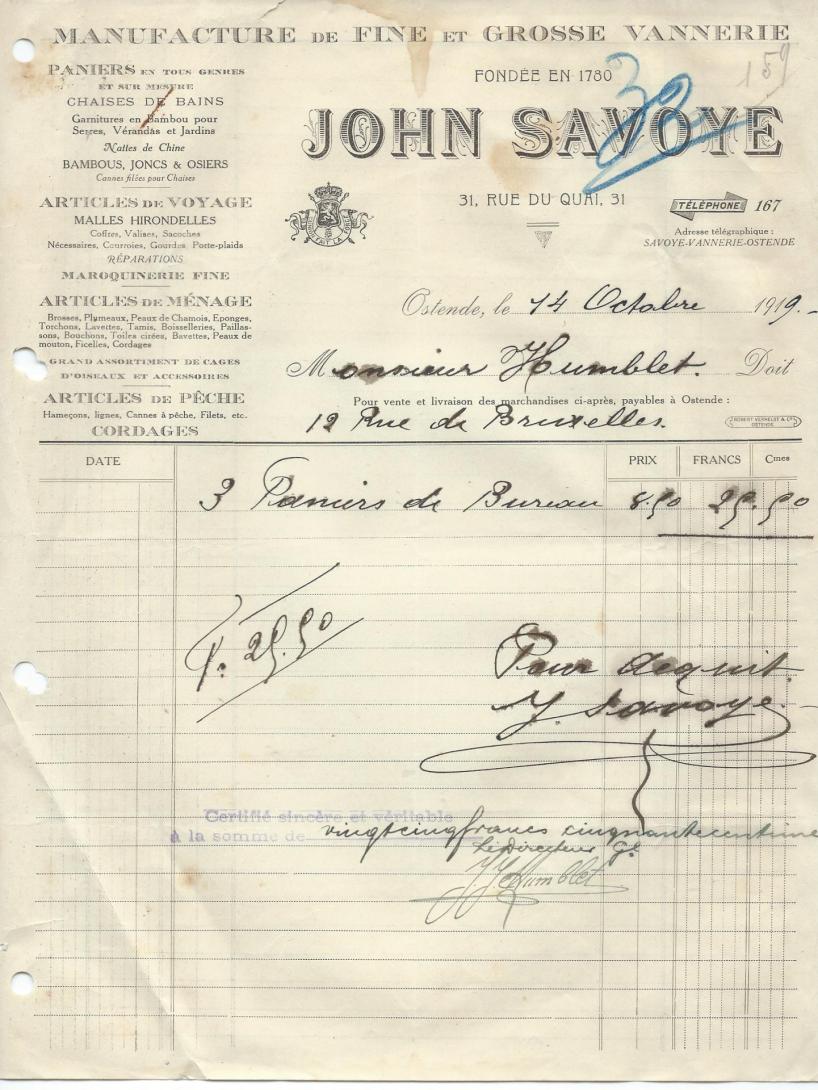 MANUFACTURE DE FINE ET GROSSE VANNERIE
159
PANIERS EN TOUS GENRES
ET SUR MESURE
CHAISES DE BAINS
Garnitures en Bambou pour
Serres, Vérandas et Jardins
Nattes de Chine
BAMBOUS, JONCS & OSIERS
Cannes filées pour Chaises
ARTICLES DE VOYAGE
MALLES HIRONDELLES
Coffres, Valises, Sacoches
Nécessaires, Courroies, Gourdes, Porte-plaids
RÉPARATIONS
MAROQUINERIE FINE
ARTICLES DE MÉNAGE
Brosses, Plumeaux, Peaux de Chamois, Eponges,
Torchons, Lavettes, Tamis, Boisselleries, Paillas-
sons, Bouchons, Toiles cirées, Bavettes, Peaux de
mouton, Ficelles, Cordages
GRAND ASSORTIMENT DE CAGES
D'OISEAUX ET ACCESSOIRES
ARTICLES DE PÊCHE
Hameçons, lignes, Cannes à pêche, Filets, etc.
CORDAGES
FONDÉE EN 1780
JOHN SAVOYE
31, RUE DU QUAI, 31
TÉLÉPHONE 167
Adresse télégraphique :
SAVOYE-VANNERIE-OSTENDE
L'UNION FAIT LA FORCE
Ostende, le 14 Octobre 1919.-
Monsieur Humblet. Doit
Pour vente et livraison des marchandises ci-après, payables à Ostende :
12 Rue de Bruxelles.
ROBERT VERHELST & Cº
OSTENDE
DATE PRIX FRANCS Cmes
3 Paniers de Bureau 8.50 25.50
F. 25.50
Pour acquit.
J. Savoye.-
Certifié sincère et véritable
à la somme de vingtcinqfrancs cinquantecentimes
Le Directeur Gl
J. J. Humblet